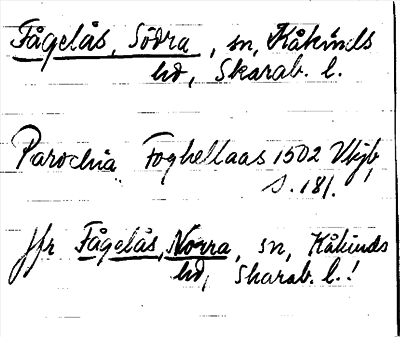 Fågelås, Södra, sn, Kåkinds
hd, Skarab. l.
Parochia Foghellaas 1502 Vkjb,
s. 181.
Jfr Fågelås, Norra, sn, Kåkinds
hd, Skarab. l.!